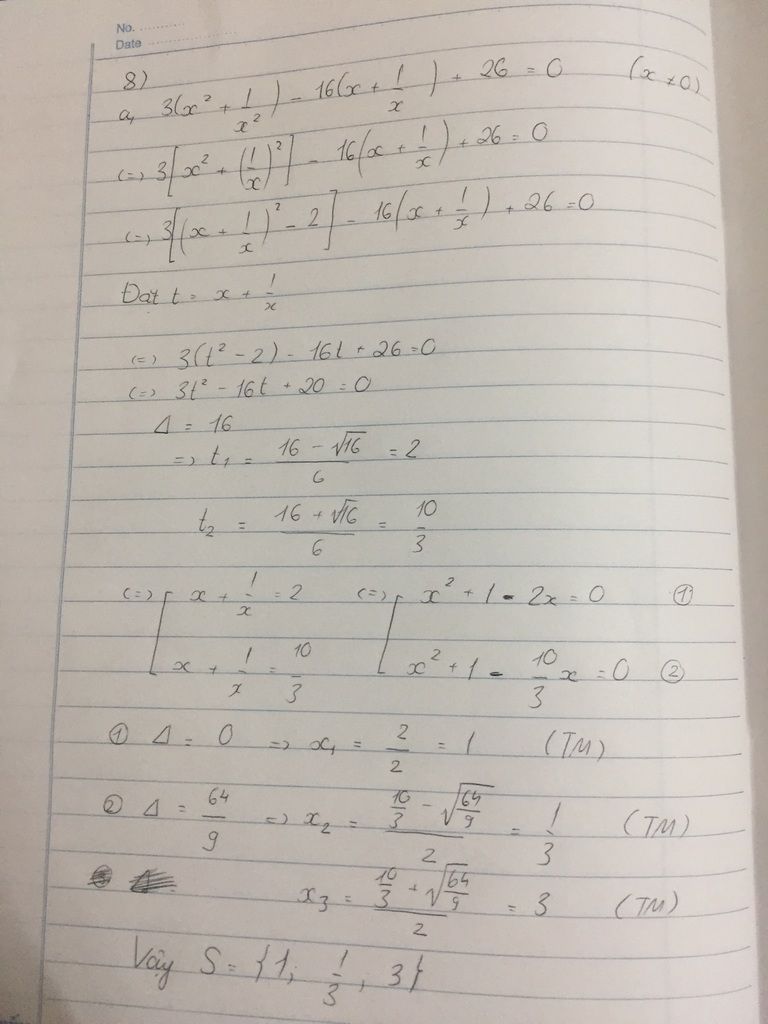 No. ..................
Date ..................
8)
a, 3(x² + 1/x²) - 16(x + 1/x) + 26 = 0 (x ≠ 0)
(=) 3[x² + (1/x)²] - 16(x + 1/x) + 26 = 0
(=) 3[(x + 1/x)² - 2] - 16(x + 1/x) + 26 = 0
Đặt t = x + 1/x
(=) 3(t² - 2) - 16t + 26 = 0
(=) 3t² - 16t + 20 = 0
Δ = 16
=) t₁ = (16 - √16)/6 = 2
t₂ = (16 + √16)/6 = 10/3
(=) [ x + 1/x = 2 (=) [ x² + 1 - 2x = 0 ①
x + 1/x = 10/3 x² + 1 - 10/3 x = 0 ②
① Δ = 0 =) x₁ = 2/2 = 1 (TM)
② Δ = 64/9 =) x₂ = (10/3 - √(64/9))/2 = 1/3 (TM)
x₃ = (10/3 + √(64/9))/2 = 3 (TM)
Vậy S = {1; 1/3, 3}